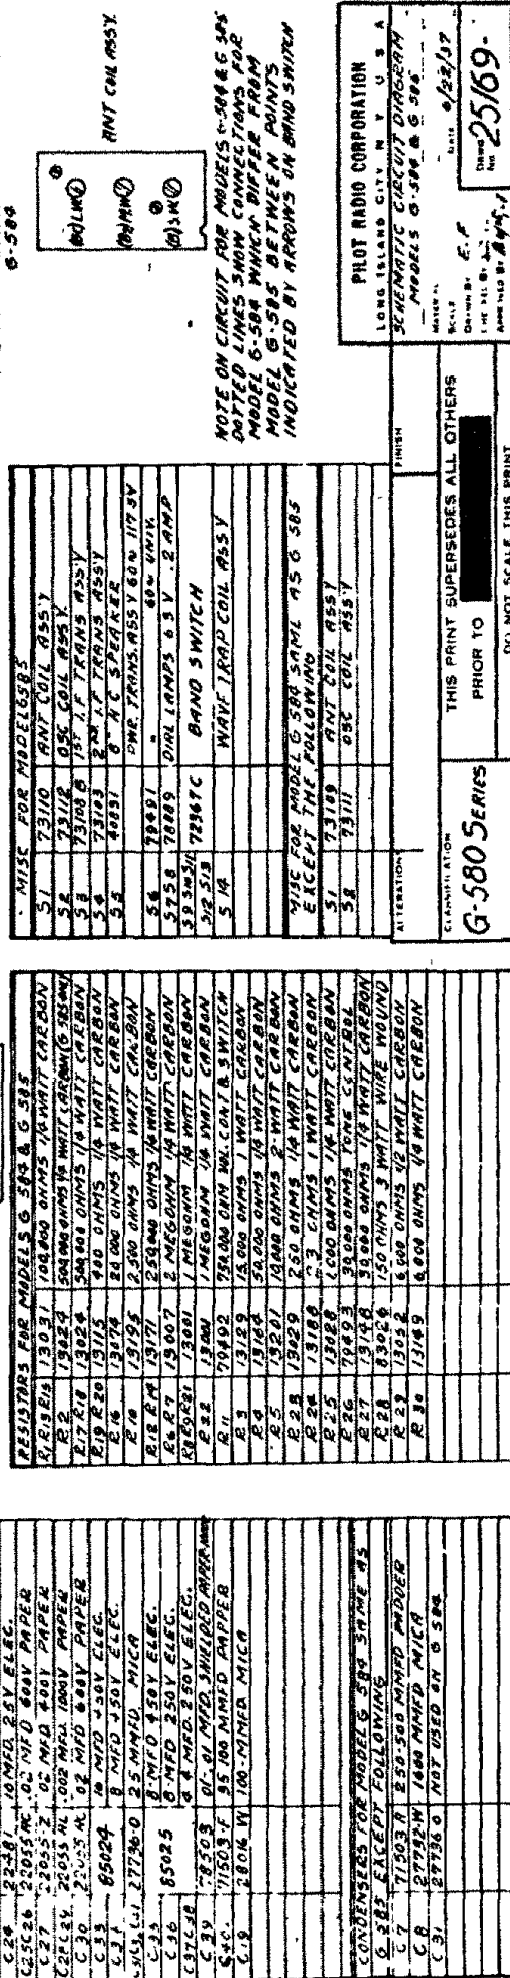 C 24 22481 10 MFD. 25 V ELEC.
C25 C26 22055 AC .02 MFD 600V PAPER
C 27 22055-Z .02 MFD 400V PAPER
22055 AL .002 MFD. 1000V PAPER
C 30 22055 AC .02 MFD 600V PAPER
C 33 10 MFD 450V ELEC.
85024
8 MFD 450V ELEC.
27736-0 25 MMFD. MICA
8 MFD 450V ELEC.
85025
C 36 8 MFD 250V ELEC.
4 MFD. 250V ELEC.
C 39 78503 .01-.01 MFD. SHIELDED PAPER
C 40 71503-F 35 100 MMFD PAPPER
C 19 28016 W 100 MMFD MICA
CONDENSERS FOR MODEL G 584 SAME AS
G 585 EXCEPT FOLLOWING
C 7 71503 A 250 500 MMFD PADDER
C 8 27732-W 1600 MMFD MICA
C 31 27736 0 NOT USED ON G 584
RESISTORS FOR MODELS G 584 & G 585
R1 R13 R15 13031 100,000 OHMS 1/4 WATT CARBON
R 2 13024 500,000 OHMS 1/4 WATT CARBON (G 585 ONLY)
R17 R18 13024 500,000 OHMS 1/4 WATT CARBON
R19 R20 13115 400 OHMS 1/4 WATT CARBON
R 16 13074 20 000 OHMS 1/4 WATT CARBON
R 10 13195 2,500 OHMS 1/4 WATT CARBON
R12 R14 13171 250,000 OHMS 1/4 WATT CARBON
R6 R7 13007 2 MEGOHM 1/4 WATT CARBON
R8 R9 R21 13001 1 MEGOHM 1/4 WATT CARBON
R 22 13001 1 MEGOHM 1/4 WATT CARBON
R 11 79492 750,000 OHM VOL. CONT & SWITCH
R 3 13129 15,000 OHMS 1 WATT CARBON
R 4 50,000 OHMS 1/4 WATT CARBON
R 5 13201 10,000 OHMS 2 WATT CARBON
R 23 13029 250 OHMS 1/4 WATT CARBON
R 24 13188 OHMS 1 WATT CARBON
R 25 13028 1,000 OHMS 1/4 WATT CARBON
R 26 79493 TONE CONTROL
R 27 13148 OHMS 1/4 WATT CARBON
R 28 83026 150 OHMS 3 WATT WIRE WOUND
R 29 13052 6 000 OHMS 1/2 WATT CARBON
R 30 13149 OHMS 1/4 WATT CARBON
MISC FOR MODEL G585
S 1 73110 ANT COIL ASS'Y
S 2 73112 OSC COIL ASS'Y.
S 3 73108 B 1ST I.F TRANS ASS'Y
S 4 73103 2ND I.F TRANS ASS'Y
S 5 40831 8" H C SPEAKER
PWR. TRANS. ASSY 60~ 117 5V
S 6 79491 " 60~ UNIV.
S7 S8 78889 DIAL LAMPS 6 5 V .2 AMP
S9 S10 S11
S12 S13 72367 C BAND SWITCH
S 14 WAVE TRAP COIL ASS Y
MISC FOR MODEL G 584 SAME AS G 585
EXCEPT THE FOLLOWING
S 1 73109 ANT COIL ASSY
S 2 73111 OSC COIL ASS'Y
ALTERATIONS
FINISH
CLASSIFICATION
G-580 SERIES
THIS PRINT SUPERSEDES ALL OTHERS
PRIOR TO
DO NOT SCALE THIS PRINT
G-584
L.W.
M.W.
S.W.
ANT COIL ASSY.
NOTE ON CIRCUIT FOR MODELS G-584 & G 585
DOTTED LINES SHOW CONNECTIONS FOR
MODEL G-584 WHICH DIFFER FROM
MODEL G-585 BETWEEN POINTS
INDICATED BY ARROWS ON BAND SWITCH
PILOT RADIO CORPORATION
LONG ISLAND CITY N Y U S A
SCHEMATIC CIRCUIT DIAGRAM
MODELS G-584 & G 585
MATERIAL
SCALE
DATE 6/22/37
DRAWN BY E.F
APPROVED BY
DRWG No 25169-